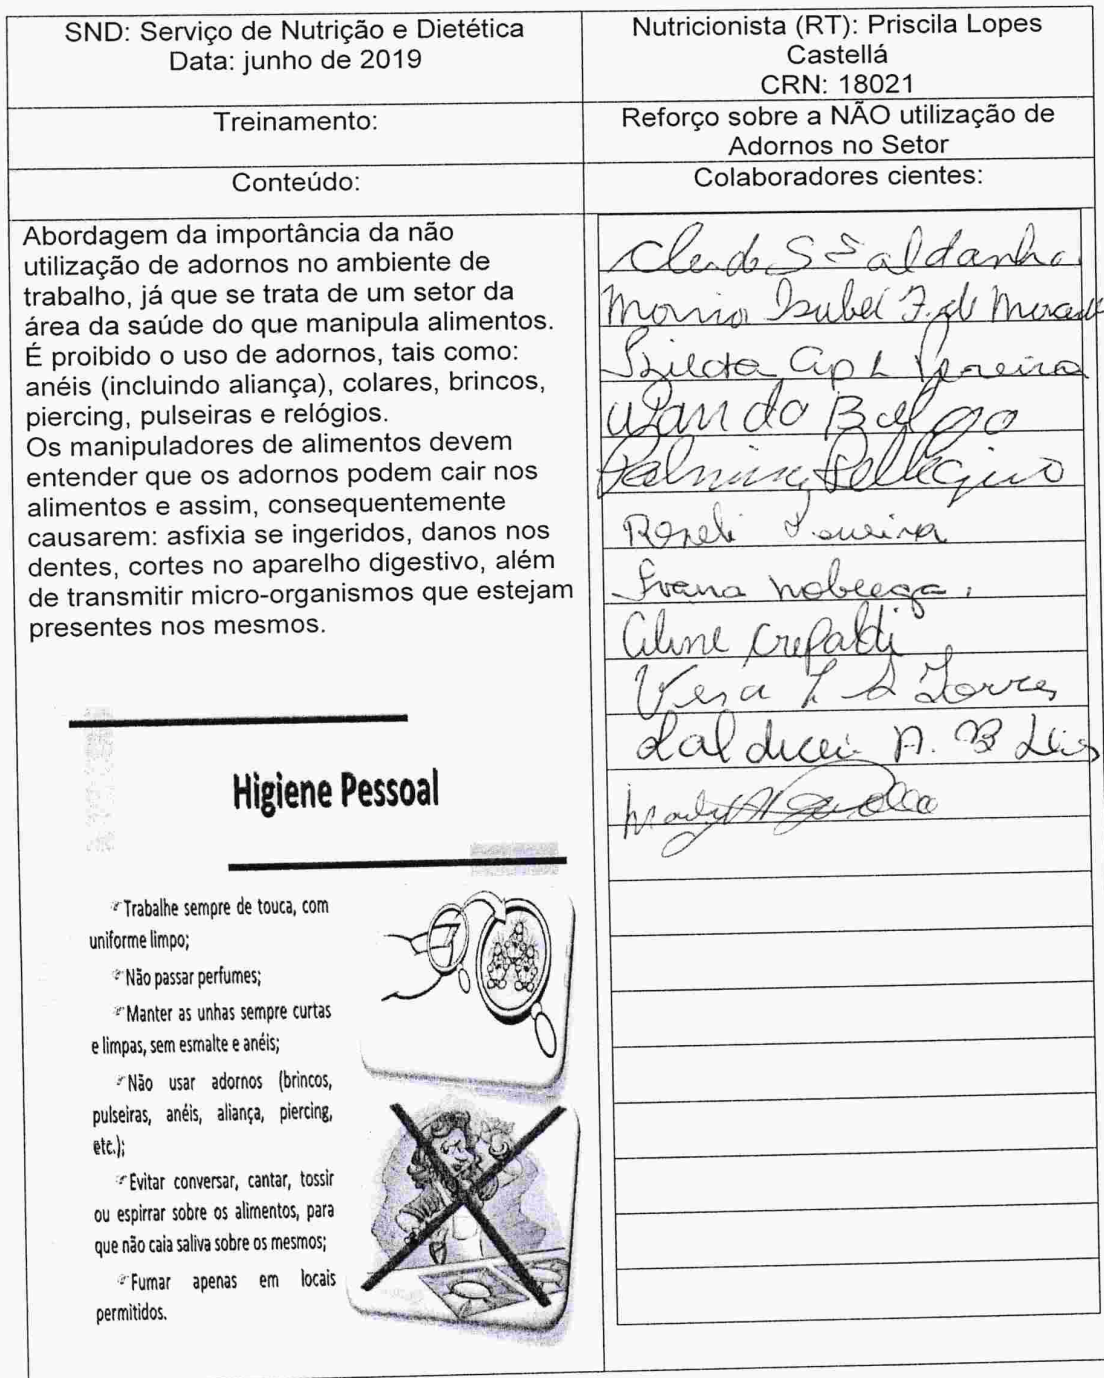 SND: Serviço de Nutrição e Dietética
Data: junho de 2019
Nutricionista (RT): Priscila Lopes
Castellá
CRN: 18021
Treinamento:
Reforço sobre a NÃO utilização de
Adornos no Setor
Conteúdo:
Colaboradores cientes:
Abordagem da importância da não
utilização de adornos no ambiente de
trabalho, já que se trata de um setor da
área da saúde do que manipula alimentos.
É proibido o uso de adornos, tais como:
anéis (incluindo aliança), colares, brincos,
piercing, pulseiras e relógios.
Os manipuladores de alimentos devem
entender que os adornos podem cair nos
alimentos e assim, consequentemente
causarem: asfixia se ingeridos, danos nos
dentes, cortes no aparelho digestivo, além
de transmitir micro-organismos que estejam
presentes nos mesmos.
Higiene Pessoal
☞Trabalhe sempre de touca, com
uniforme limpo;
☞Não passar perfumes;
☞Manter as unhas sempre curtas
e limpas, sem esmalte e anéis;
☞Não usar adornos (brincos,
pulseiras, anéis, aliança, piercing,
etc.);
☞Evitar conversar, cantar, tossir
ou espirrar sobre os alimentos, para
que não caia saliva sobre os mesmos;
☞Fumar apenas em locais
permitidos.
Saldanha
Isabel F. de
Ap L Pereira
Pellegrino
Roseli
Ivana Nobrega.
Aline Crepaldi
Vera L S Torres
A. B